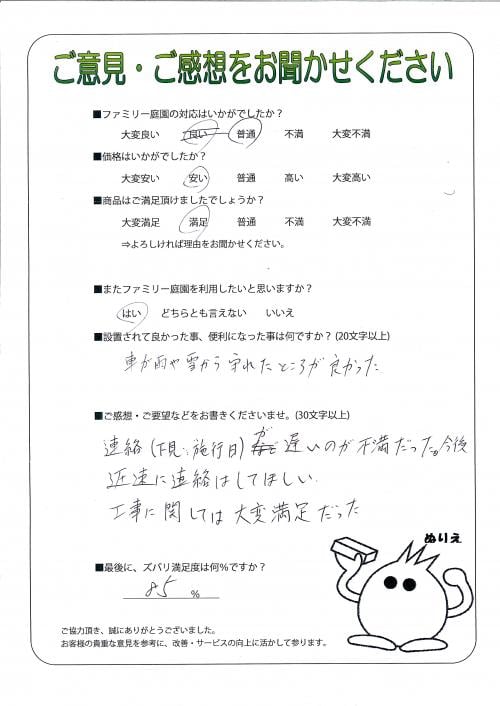 ご意見・ご感想をお聞かせください
■ファミリー庭園の対応はいかがでしたか？
大変良い 良い 普通 不満 大変不満
■価格はいかがでしたか？
大変安い 安い 普通 高い 大変高い
■商品はご満足頂けましたでしょうか？
大変満足 満足 普通 不満 大変不満
⇒よろしければ理由をお聞かせください。
■またファミリー庭園を利用したいと思いますか？
はい どちらとも言えない いいえ
■設置されて良かった事、便利になった事は何ですか？(20文字以上)
車が雨や雪から守れたところが良かった
■ご感想・ご要望などをお書きくださいませ。(30文字以上)
連絡(下見・施行日)が遅いのが不満だった。今後
迅速に連絡はしてほしい.
工事に関しては大変満足だった
ぬりえ
■最後に、ズバリ満足度は何％ですか？
85 %
ご協力頂き、誠にありがとうございました。
お客様の貴重な意見を参考に、改善・サービスの向上に活かして参ります。